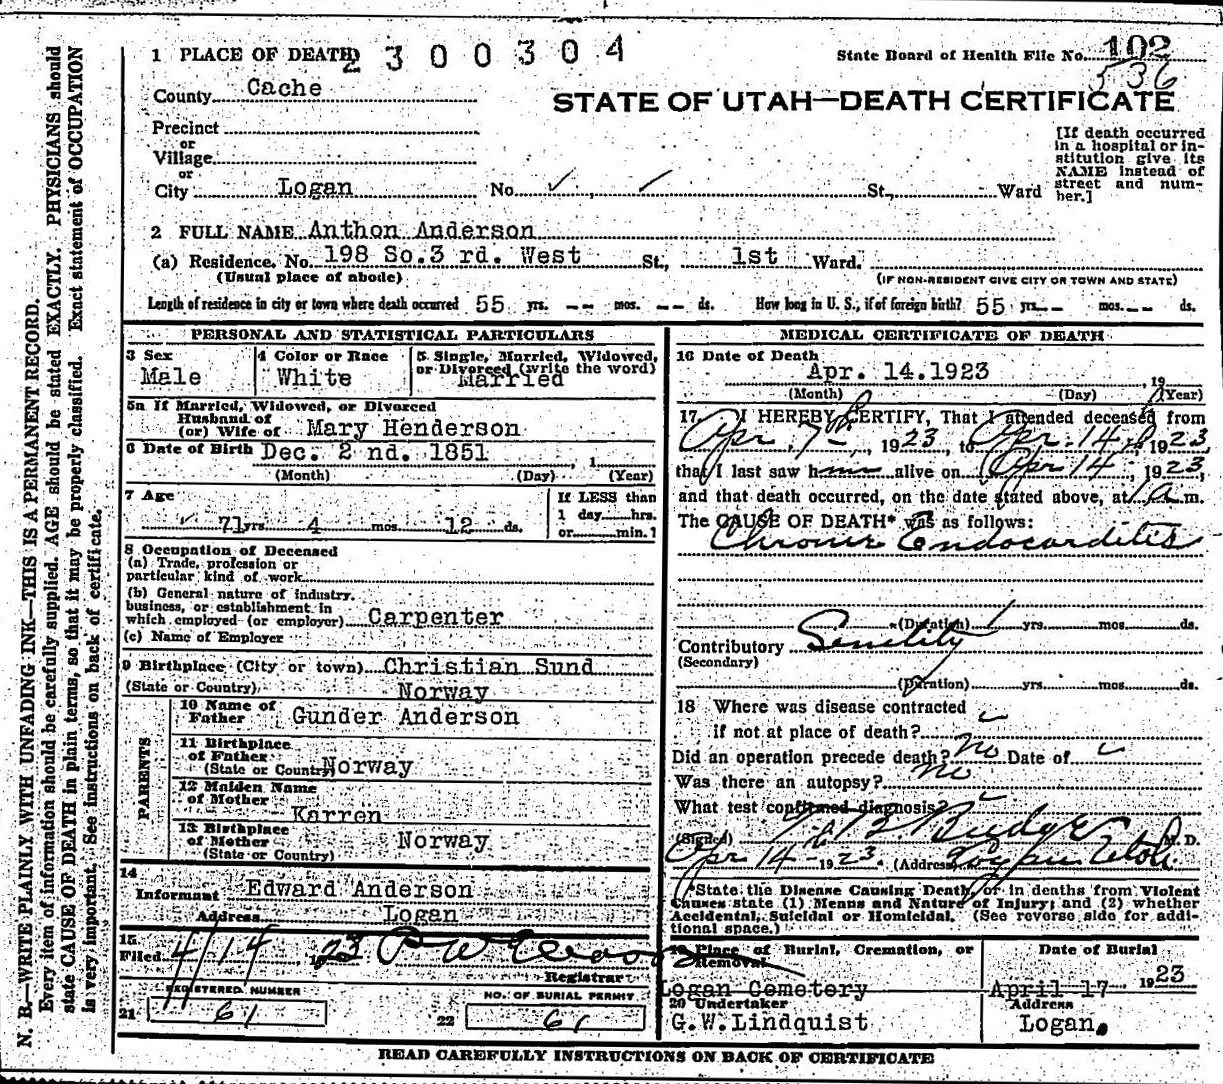 1 PLACE OF DEATH 2 3 0 0 3 0 4
State Board of Health File No. 102
536
County Cache
STATE OF UTAH—DEATH CERTIFICATE
Precinct
or
Village
or
City Logan No. ✓ ✓ St., Ward
[If death occurred
in a hospital or in-
stitution give its
NAME instead of
street and num-
ber.]
2 FULL NAME Anthon Anderson
(a) Residence. No. 198 So.3 rd. West St., 1st Ward.
(Usual place of abode)
(IF NON-RESIDENT GIVE CITY OR TOWN AND STATE)
Length of residence in city or town where death occurred 55 yrs. -- mos. -- ds. How long in U. S., if of foreign birth? 55 yrs. -- mos. -- ds.
PERSONAL AND STATISTICAL PARTICULARS
3 Sex
Male
4 Color or Race
White
5 Single, Married, Widowed,
or Divorced (write the word)
Married
5a If Married, Widowed, or Divorced
Husband of
(or) Wife of Mary Henderson
6 Date of Birth Dec. 2 nd. 1851, 1
(Month) (Day) (Year)
7 Age
✓ 71 yrs. 4 mos. 12 ds.
If LESS than
1 day hrs.
or min.?
8 Occupation of Deceased
(a) Trade, profession or
particular kind of work
(b) General nature of industry,
business, or establishment in
which employed (or employer) Carpenter
(c) Name of Employer
9 Birthplace (City or town) Christian Sund
(State or Country) Norway
PARENTS
10 Name of
Father Gunder Anderson
11 Birthplace
of Father
(State or Country) Norway
12 Maiden Name
of Mother
Karren
13 Birthplace
of Mother Norway
(State or Country)
14
Informant Edward Anderson
Address Logan
15
Filed 4/14 1923 P W
Registrar
REGISTERED NUMBER
21 61
NO. OF BURIAL PERMIT
22 61
MEDICAL CERTIFICATE OF DEATH
16 Date of Death
Apr. 14.1923, 19
(Month) (Day) (Year)
17 I HEREBY CERTIFY, That I attended deceased from
Apr. 7th, 1923, to Apr. 14th, 1923,
that I last saw him alive on Apr 14, 1923,
and that death occurred, on the date stated above, at 1 a.m.
The CAUSE OF DEATH* was as follows:
Chronic Endocarditis
(Duration) 1 yrs. mos. ds.
Contributory Senility
(Secondary)
(Duration) yrs. mos. ds.
18 Where was disease contracted
if not at place of death?
Did an operation precede death? no Date of
Was there an autopsy? no
What test confirmed diagnosis?
(Signed) Budge M. D.
Apr 14 - 1923. (Address) Logan Utah
*State the Disease Causing Death, or in deaths from Violent
Causes state (1) Means and Nature of Injury; and (2) whether
Accidental, Suicidal or Homicidal. (See reverse side for addi-
tional space.)
19 Place of Burial, Cremation, or
Removal
Logan Cemetery
Date of Burial
April 17 1923
20 Undertaker
G.W.Lindquist
Address
Logan.
READ CAREFULLY INSTRUCTIONS ON BACK OF CERTIFICATE
N. B.—WRITE PLAINLY WITH UNFADING INK—THIS IS A PERMANENT RECORD.
Every item of information should be carefully supplied. AGE should be stated EXACTLY. PHYSICIANS should
state CAUSE OF DEATH in plain terms, so that it may be properly classified. Exact statement of OCCUPATION
is very important. See instructions on back of certificate.